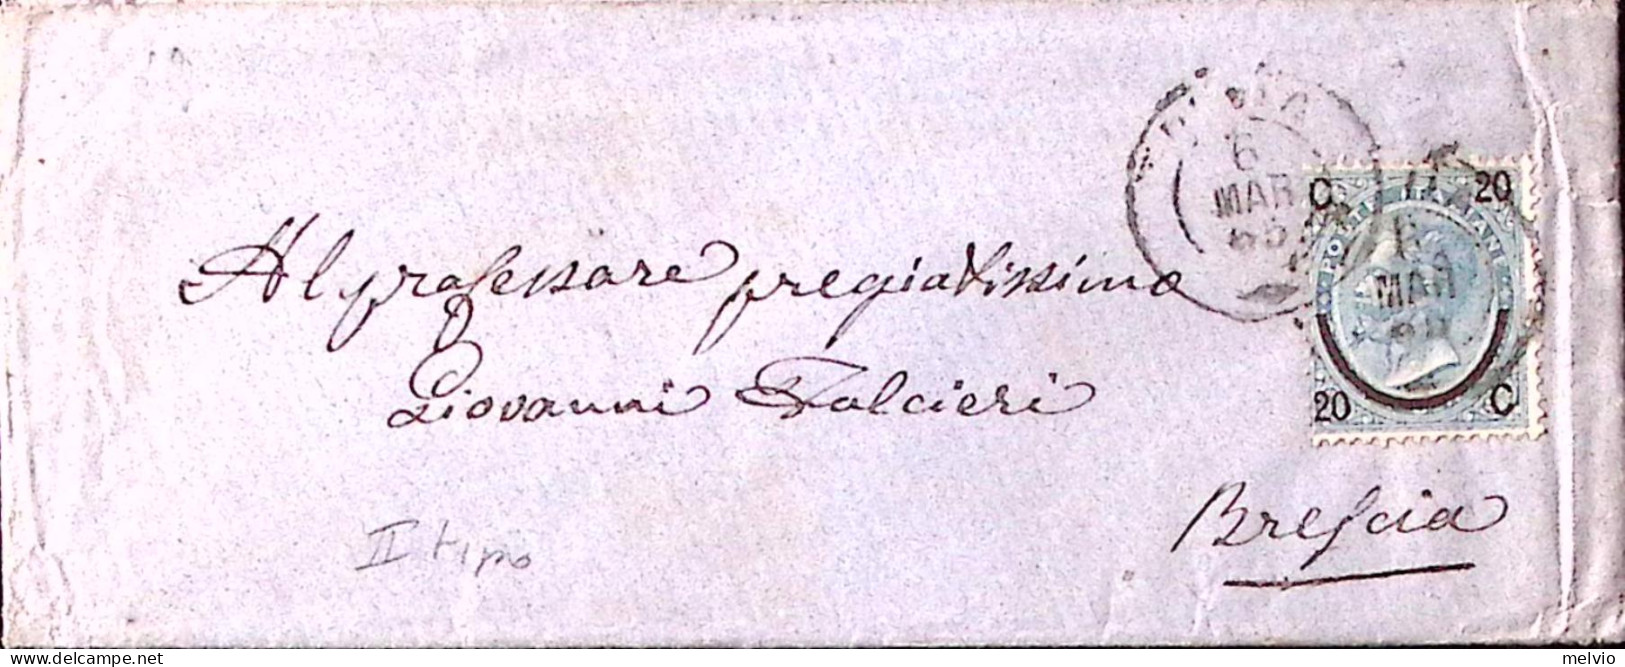 6
MAR
65
C 20
POSTE ITALIANE
6
MAR
20 C
Al professore pregiatissimo
Giovanni Falcieri
Brescia
II tipo
delcampe.net
melvio